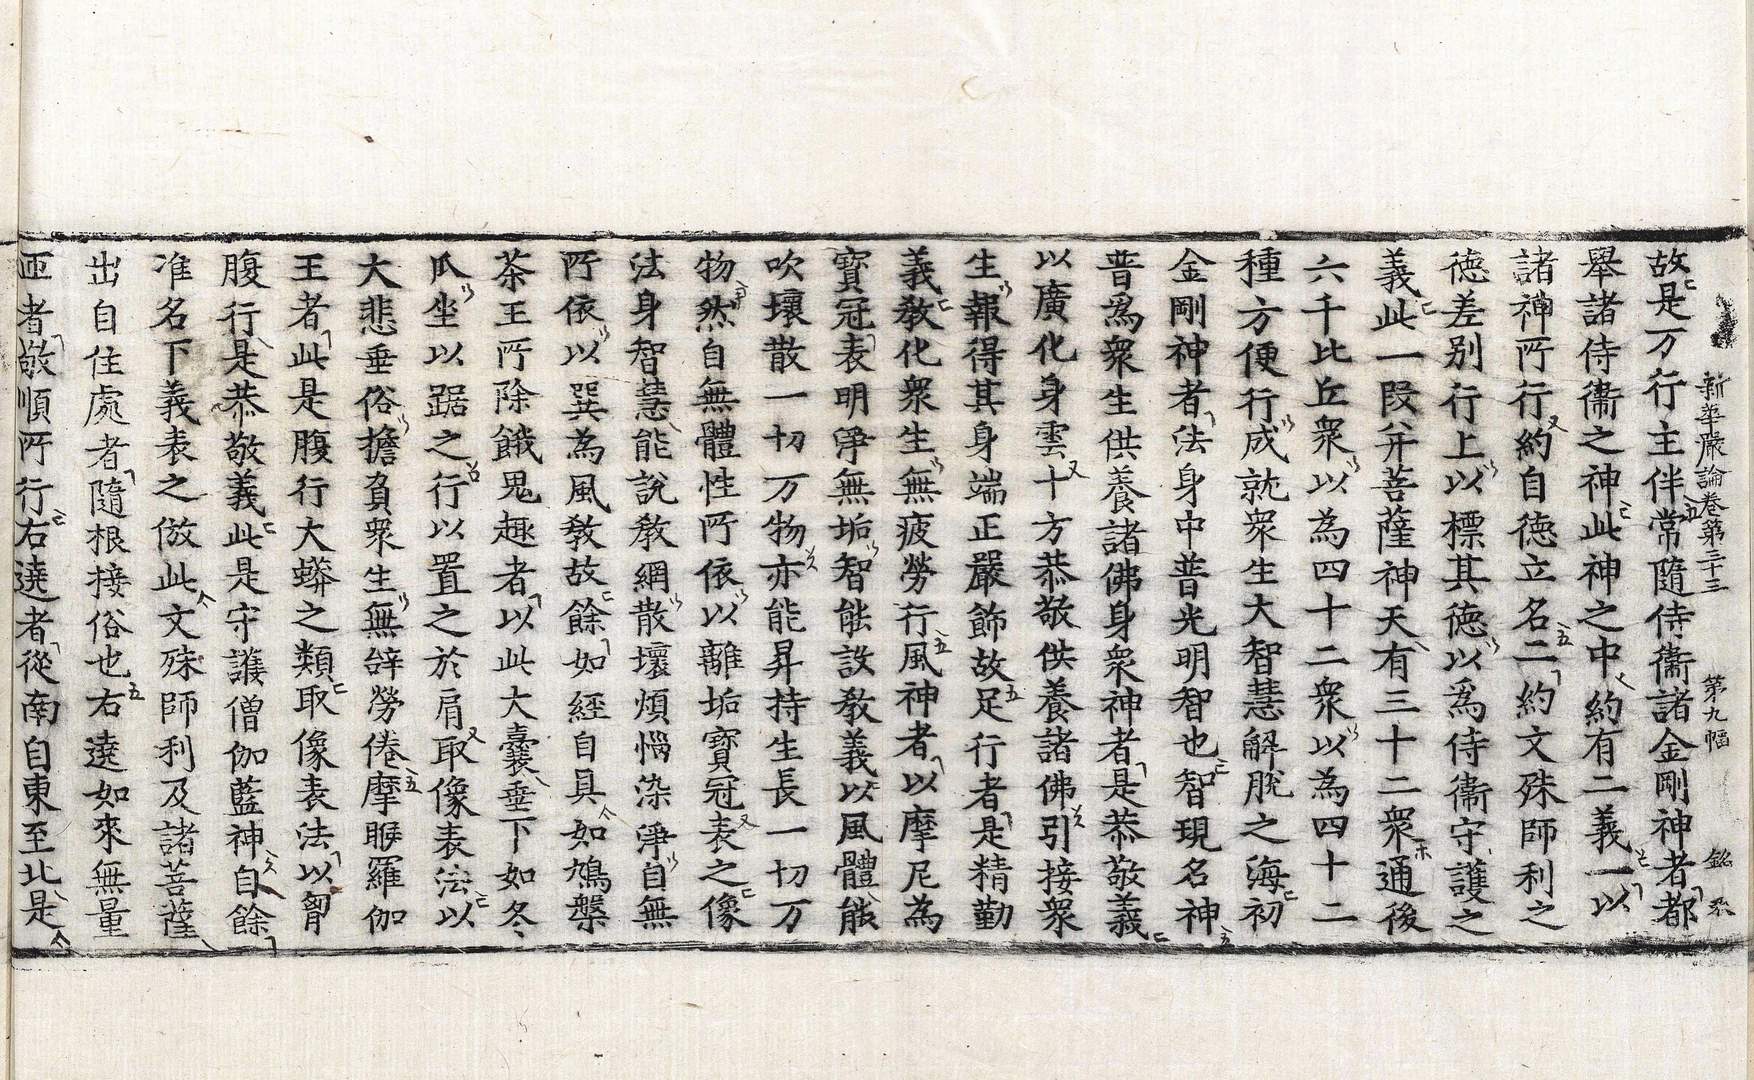 新華嚴論卷第三十三 第九幅 銘
故是万行主伴常隨侍衞諸金剛神者都
舉諸侍衞之神此神之中約有二義一以
諸神所行約自德立名二約文殊師利之
德差别行上以標其德以爲侍衞守護之
義此一段并菩薩神天有三十二衆通後
六千比丘衆以為四十二衆以為四十二
種方便行成就衆生大智慧解脫之海初
金剛神者法身中普光明智也智現名神
普爲衆生供養諸佛身衆神者是恭敬義
以廣化身雲十方恭敬供養諸佛引接衆
生報得其身端正嚴飾故足行者是精勤
義教化衆生無疲勞行風神者以摩尼為
寶冠表明淨無垢智能設教義以風體能
吹壞散一切万物亦能昇持生長一切万
物然自無體性所依以離垢寶冠表之像
法身智慧能說教網散壞煩惱染淨自無
所依以巽為風教故餘如經自具如鳩槃
茶王所除餓鬼趣者以此大囊垂下如冬
瓜坐以踞之行以置之於肩取像表法以
大悲垂俗擔負衆生無辝勞倦摩睺羅伽
王者此是腹行大蟒之類取像表法以胷
腹行是恭敬義此是守護僧伽藍神自餘
准名下義表之倣此文殊師利及諸菩薩
出自住處者隨根接俗也右遶如來無量
匝者敬順所行右遶者從南自東至北是